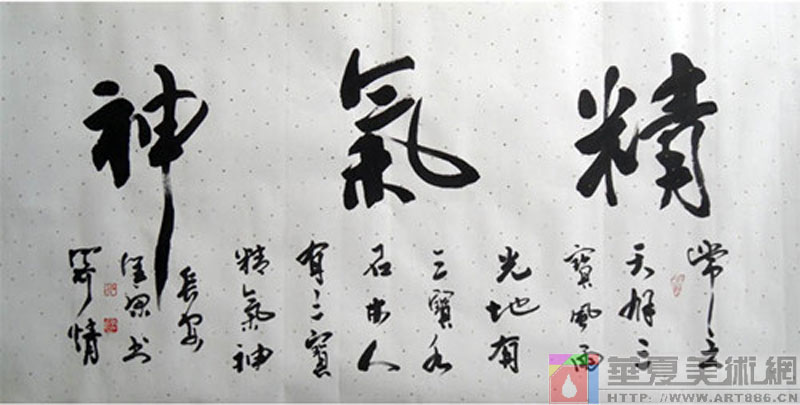 精氣神
常言
天有三
寶風雨
光地有
三寶水
石木人
有三寶
精氣神
長安
書
舒情
華夏美術網
HTTP://WWW.ART886.CN